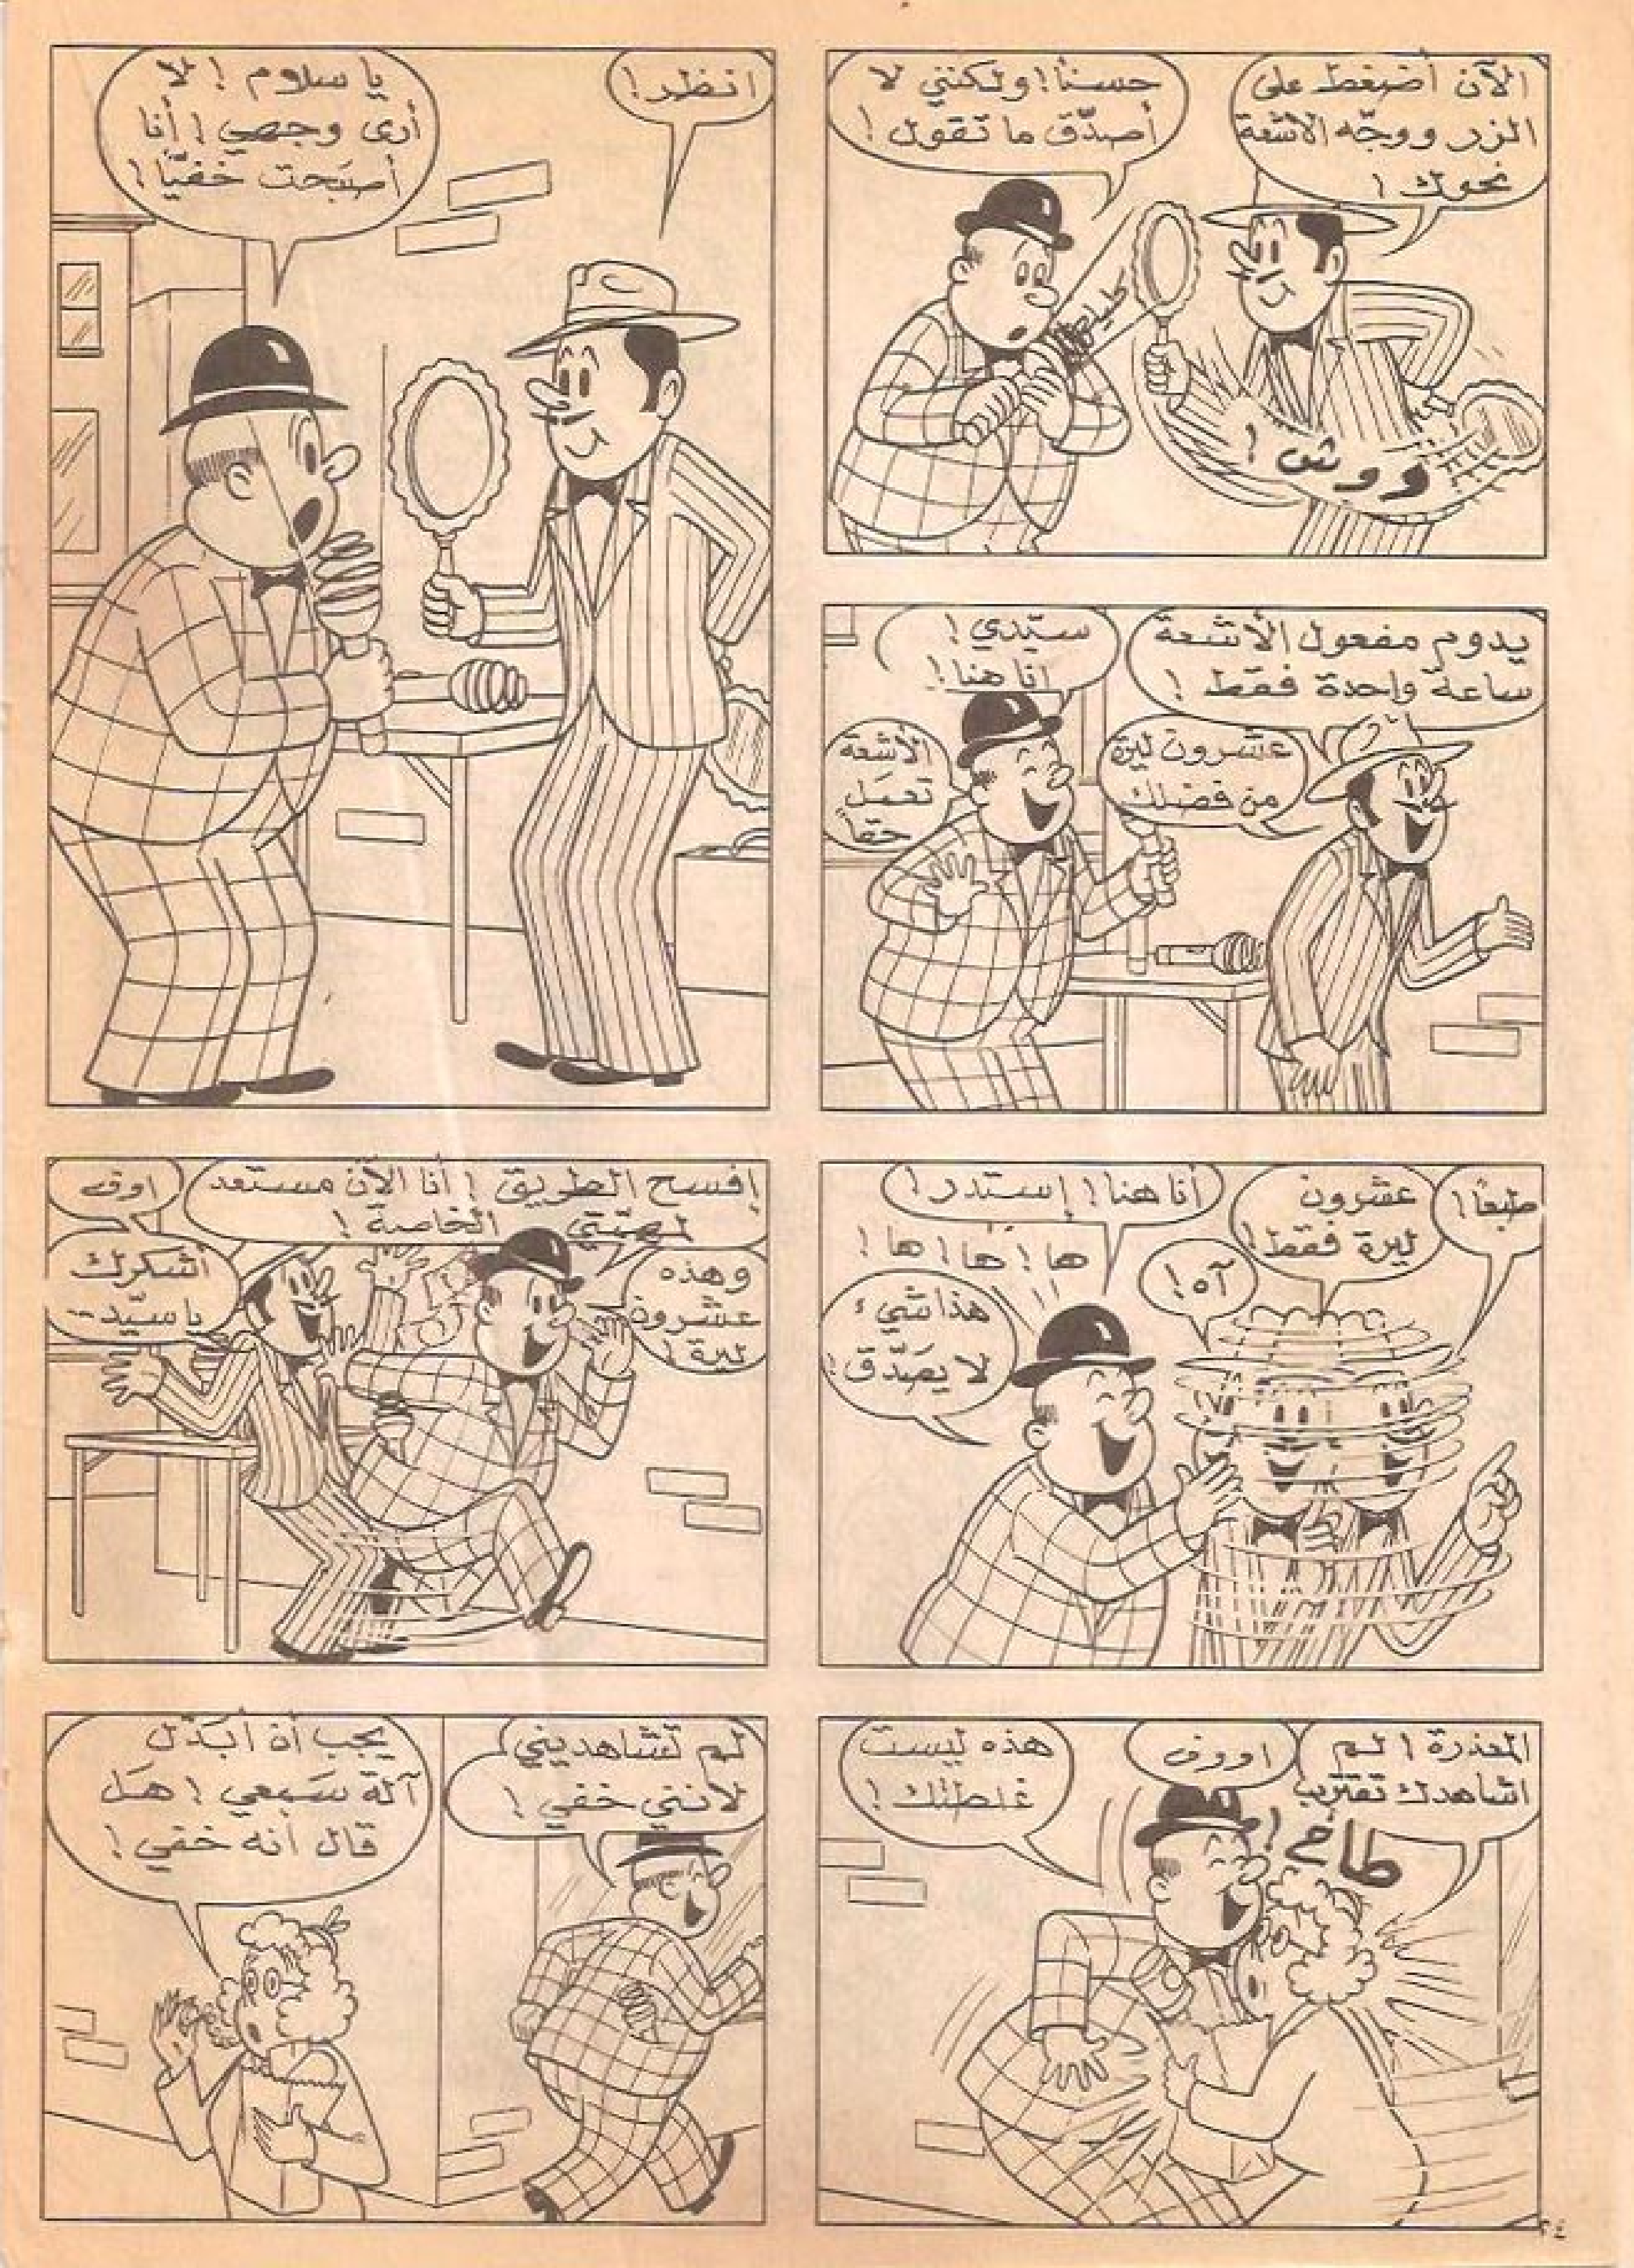 الآن أضغط على
الزر ووجّه الأشعة
نحوك!
حسناً! ولكنني لا
أصدّق ما تقول!
ووش!
انظر!
يا سلام! لا
أرى وجهي! أنا
أصبحت خفيّاً!
يدوم مفعول الأشعة
ساعة واحدة فقط!
عشرون ليرة
من فضلك
سيّدي!
انا هنا!
الأشعة
تعمل
حقاً
طبعاً!
عشرون
ليرة فقط!
آه!
أنا هنا! إستدر!
ها! ها! ها!
هذا شيء
لا يصدّق!
إفسح الطريق! أنا الآن مستعد
لمهمّتي الخاصة!
وهذه
عشرون
ليرة!
اوف
أشكرك
يا سيّد..
المعذرة! لم
اشاهدك تقترب
طاخ!
اووف
هذه ليست
غلطتك!
لم تشاهديني
لأنني خفي!
يجب أن أبدّل
آلة سَمعي! هَل
قال أنه خفي!
٢٤